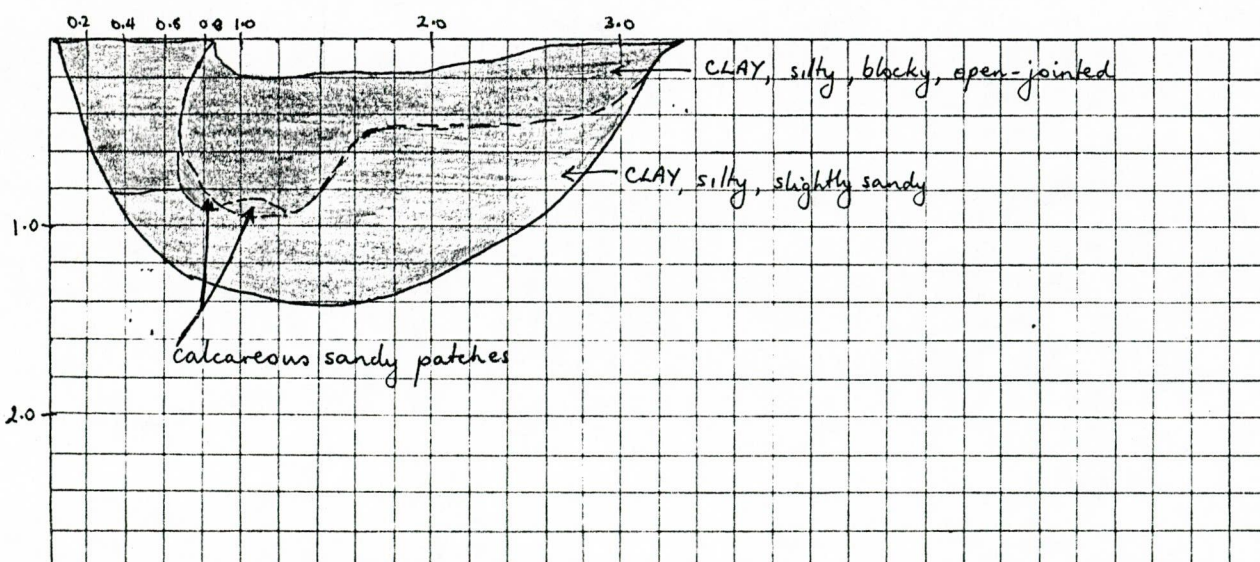 0.2 0.4 0.6 0.8 1.0 2.0 3.0
CLAY, silty, blocky, open-jointed
CLAY, silty, slightly sandy
1.0
calcareous sandy patches
2.0